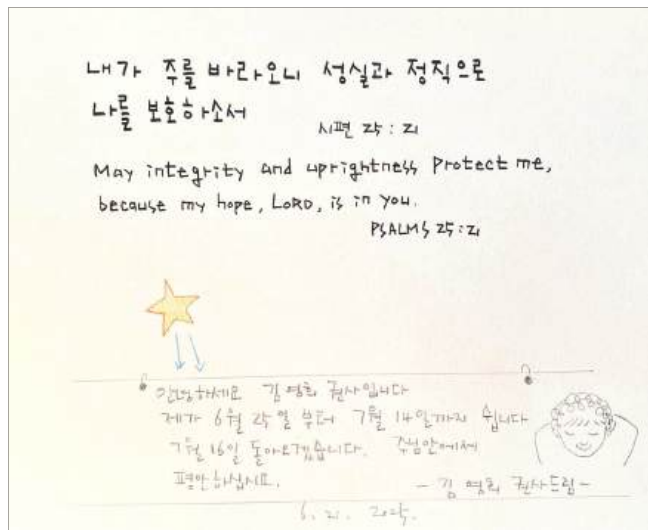 내가 주를 바라오니 성실과 정직으로
나를 보호하소서
시편 25 : 21
May integrity and uprightness Protect me,
because my hope, LORD, is in you.
PSALMS 25:21
안녕하세요 김영희 권사입니다
제가 6월 25일 부터 7월 14일까지 쉽니다
7월 16일 돌아오겠습니다. 주님안에서
평안하십시요.
- 김영희 권사드림 -
6. 21. 2025.